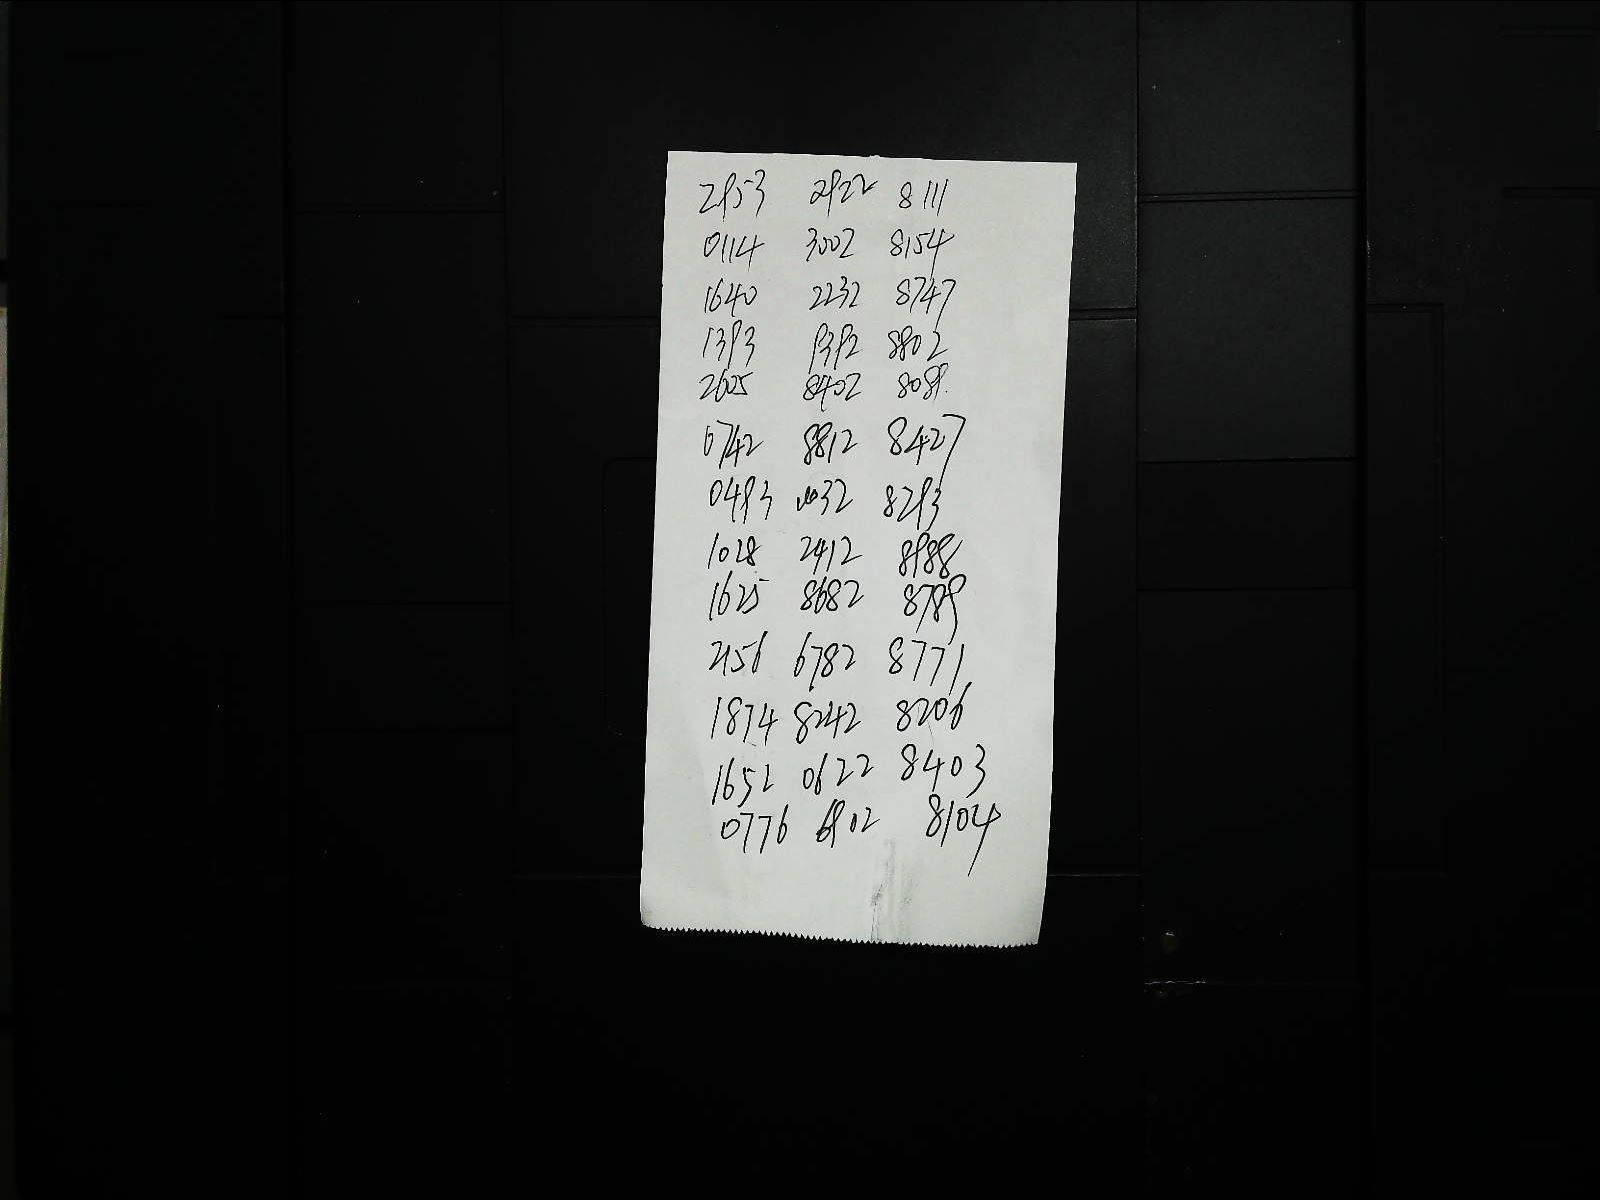 2953 2922 8111
0114 3002 8154
1640 2232 8747
1393 9392 8802
2605 8402 8089
0742 8812 8427
0493 8293
1028 2412 8988
1625 8682 8789
2156 6782 8771
1874 8242 8206
1652 0622 8403
0776 6902 8104